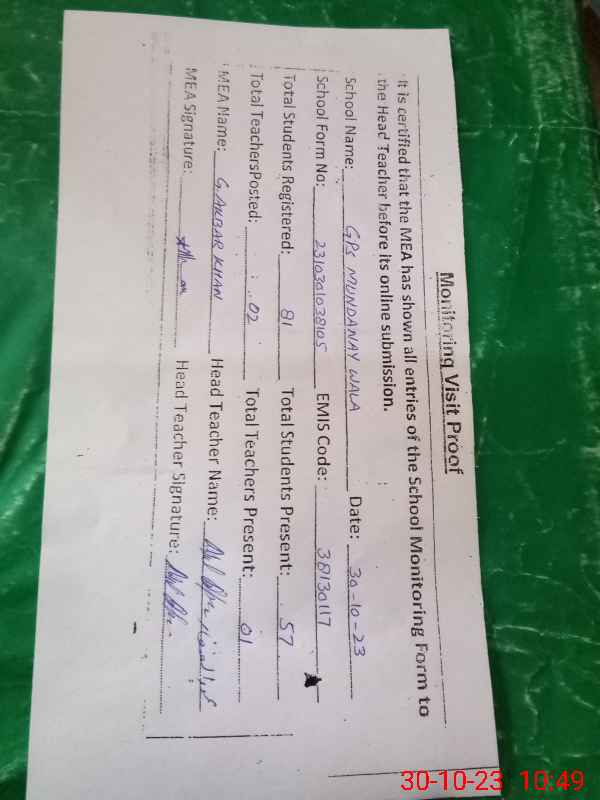 Monitoring Visit Proof
It is certified that the MEA has shown all entries of the School Monitoring Form to
the Head Teacher before its online submission.
School Name: GPS MUNDANAY WALA Date: 30-10-23
School Form No: 2310301038105 EMIS Code: 38130117
Total Students Registered: 81 Total Students Present: 57
Total TeachersPosted: 02 Total Teachers Present: 01
MEA Name: G. AKBAR KHAN Head Teacher Name:
MEA Signature: Head Teacher Signature:
30-10-23 10:49